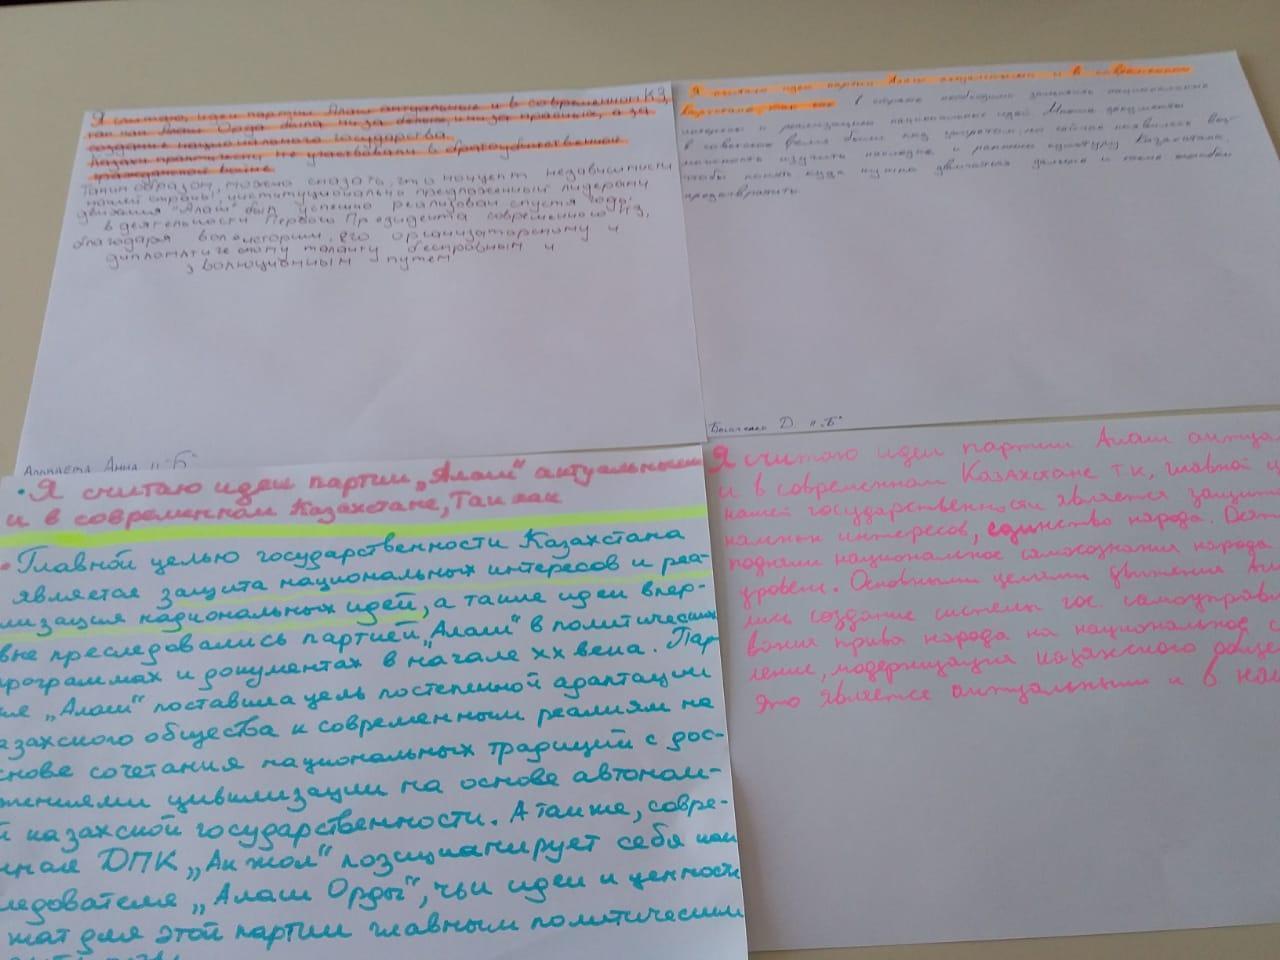 Я считаю, идеи партии Алаш актуальные и в современном КЗ,
так как Алаш Орда была ни за белых, ни за красных, а за
создание национального государства.
Казахи практически не участвовали в братоубийственной
гражданской войне
Таким образом, можно сказать, что концепт независимости
нашей страны, институционально предложенный лидерами
движения "Алаш" был успешно реализован спустя годы
в деятельности Первого Президента современного КЗ,
благодаря его организаторскому и
дипломатическому таланту бескровным и
эволюционным путем
Анна 11 "Б"
Я считаю идеи партии Алаш актуальными и в современном
Казахстане, так как в стране необходимо защищать национальные
интересы и реализацию национальных идей. Многие документы
в советское время были под запретом, но сейчас появилась воз-
можность изучить наследие и раннюю культуру Казахстана,
чтобы понять куда нужно двигаться дальше и какие ошибки
предотвратить.
Д. 11 "Б"
• Я считаю идеи партии „Алаш" актуальными
и в современном Казахстане, Так как
• Главной целью государственности Казахстана
является защита национальных интересов и реа-
лизация национальных идей, а такие идеи впер-
вые преследовались партией „Алаш" в политических
программах и документах в начале XX века. Пар
ия „Алаш" поставила цель постепенной адаптации
азахского общества к современным реалиям на
снове сочетания национальных традиций с дос-
жениями цивилизации на основе автоном-
й казахской государственности. А также, совре-
нная ДПК „Ак жол" позиционирует себя как
ледователя „Алаш Орды", чьи идеи и ценности
жат для этой партии главным политическим
Я считаю идеи партии Алаш актуал
и в современном Казахстане т.к. главной ц
нашей государственности является защита
нальных интересов, единство народа. Деят
подняли национальное самосознание народа
уровень. Основными целями движения Ала
лись создание системы гос. самоуправ
вания права народа на национальное с
ление, модернизация казахского общес
Это является актуальным и в на